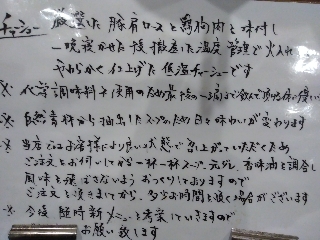 チャーシュー
厳選した 豚肩ロースと鶏胸肉を味付し
一晩寝かせた後 徹底した温度管理で火入れ
やわらかく仕上げた 低温チャーシューです
※ 化学調味料不使用のため最後の一滴まで飲んで
※ 自然素材から抽出したスープのため日々味わいが変わります
※ 当店ではお客様により良い状態で召し上がっていただくため
ご注文をお伺いしてから一杯一杯スープ、元ダレ、香味油を調合し
風味を飛ばさないよう おつくりしておりますので
ご注文を頂きましてから、多少お時間を頂く場合がございます
※ 今後 随時新メニューを考案していきますので
お願い致します